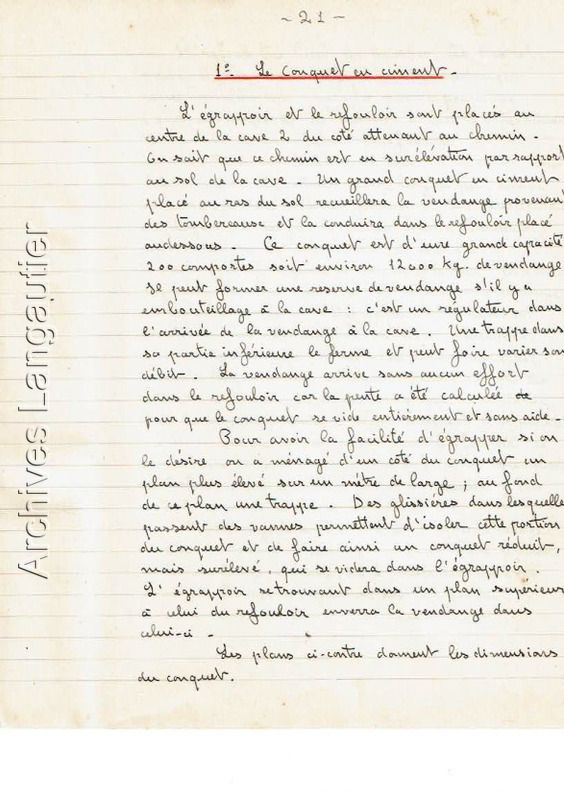 ~ 21 ~
1º. Le Conquet en ciment.
L'égrappoir et le refouloir sont placés au
centre de la cave 2 du coté attenant au chemin.
On sait que ce chemin est en surélévation par rapport
au sol de la cave. Un grand conquet en ciment
placé au ras du sol recueillera la vendange provenant
des tombereaux et la conduira dans le refouloir placé
audessous. Ce conquet est d'une grande capacité
200 comportes soit environ 12000 kg. de vendange
Il peut former une reserve de vendange s'il y a
embouteillage à la cave : c'est un régulateur dans
l'arrivée de la vendange à la cave. Une trappe dans
sa partie inférieure le ferme et peut faire varier son
débit. La vendange arrive sans aucun effort
dans le refouloir car la pente a été calculée de
pour que le conquet se vide entièrement et sans aide.
Pour avoir la facilité d'égrapper si on
le désire on a ménagé d'un coté du conquet un
plan plus élevé sur un mètre de large ; au fond
de ce plan une trappe. Des glissières dans lesquelle
passent des vannes permettent d'isoler cette portion
du conquet et de faire ainsi un conquet réduit,
mais surélevé, qui se videra dans l'égrappoir.
L'égrappoir se trouvant dans un plan supérieur
à celui du refouloir enverra la vendange dans
celui-ci.
Les plans ci-contre donnent les dimensions
du conquet.
Archives Langautier